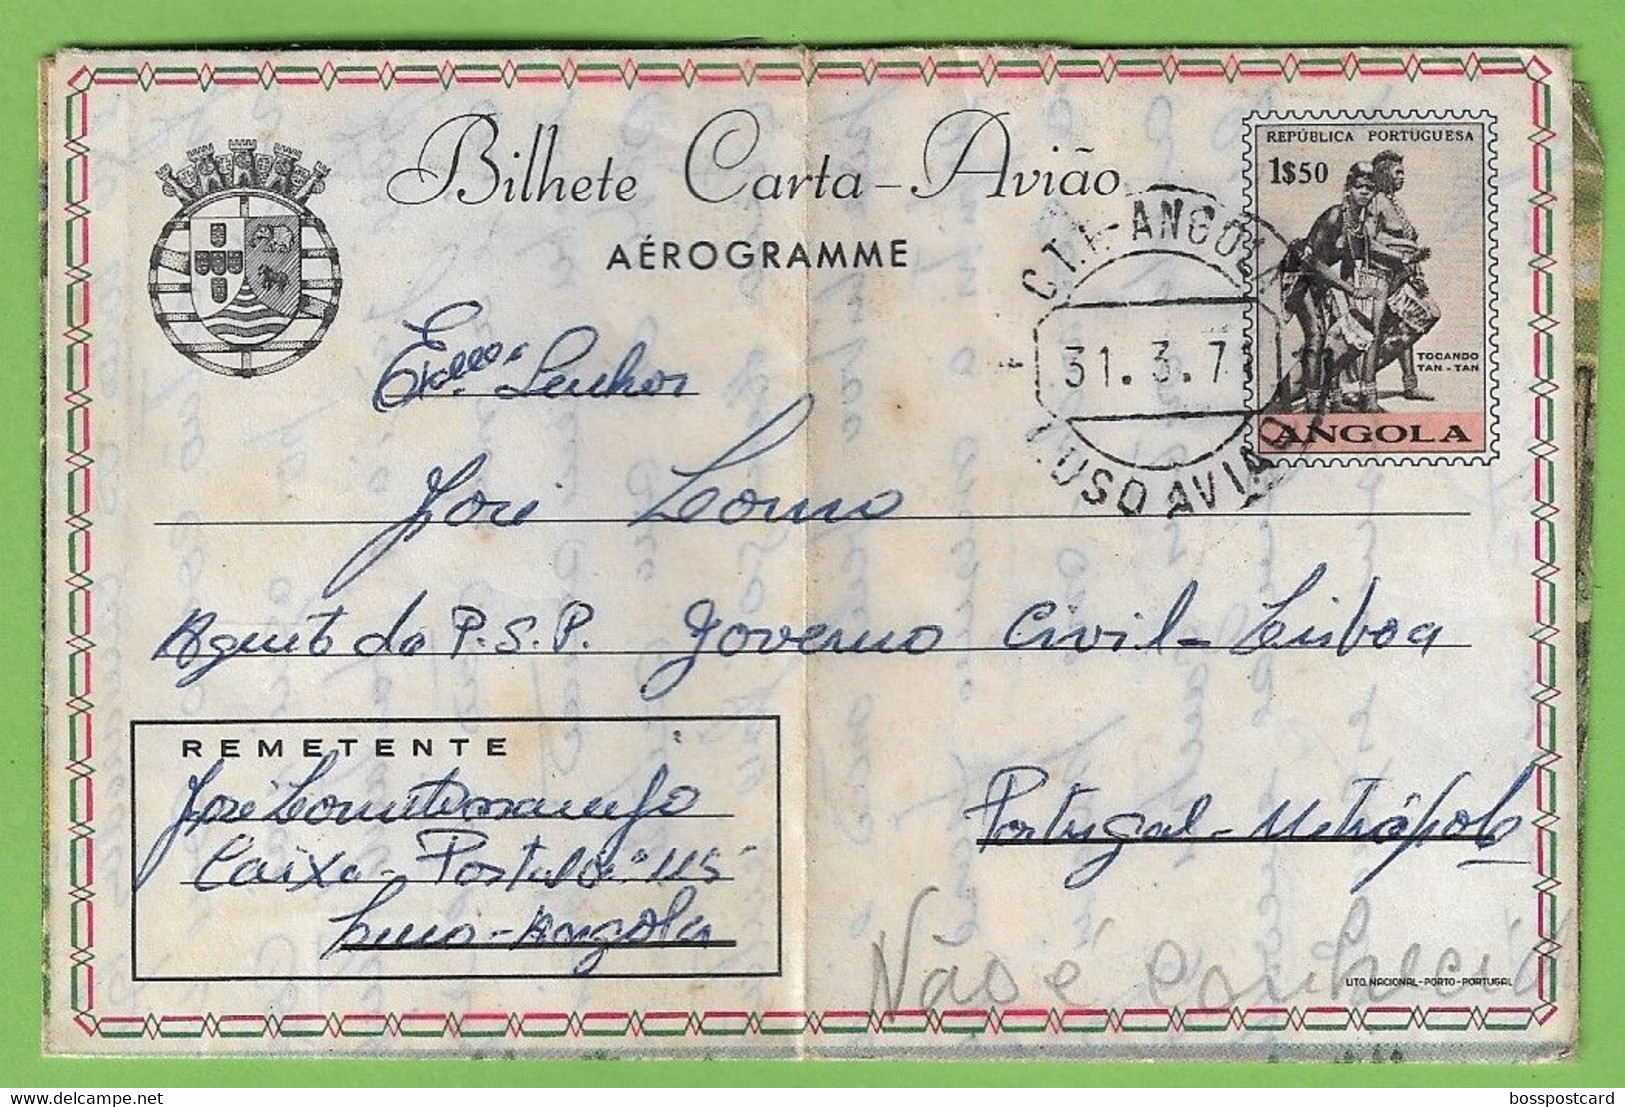 Bilhete Carta-Avião
AÉROGRAMME
REPÚBLICA PORTUGUESA
1$50
TOCANDO
TAN-TAN
ANGOLA
C.T.T-ANGOLA
31.3.7
LUSO AVIAO
Senhor
José
Agente da P.S.P. Governo Civil-Lisboa
Portugal-Metrópole
REMETENTE
José
Caixa-Postal "115"
Luso-Angola
Não é conhecid
LITO. NACIONAL-PORTO-PORTUGAL
bosspostcard